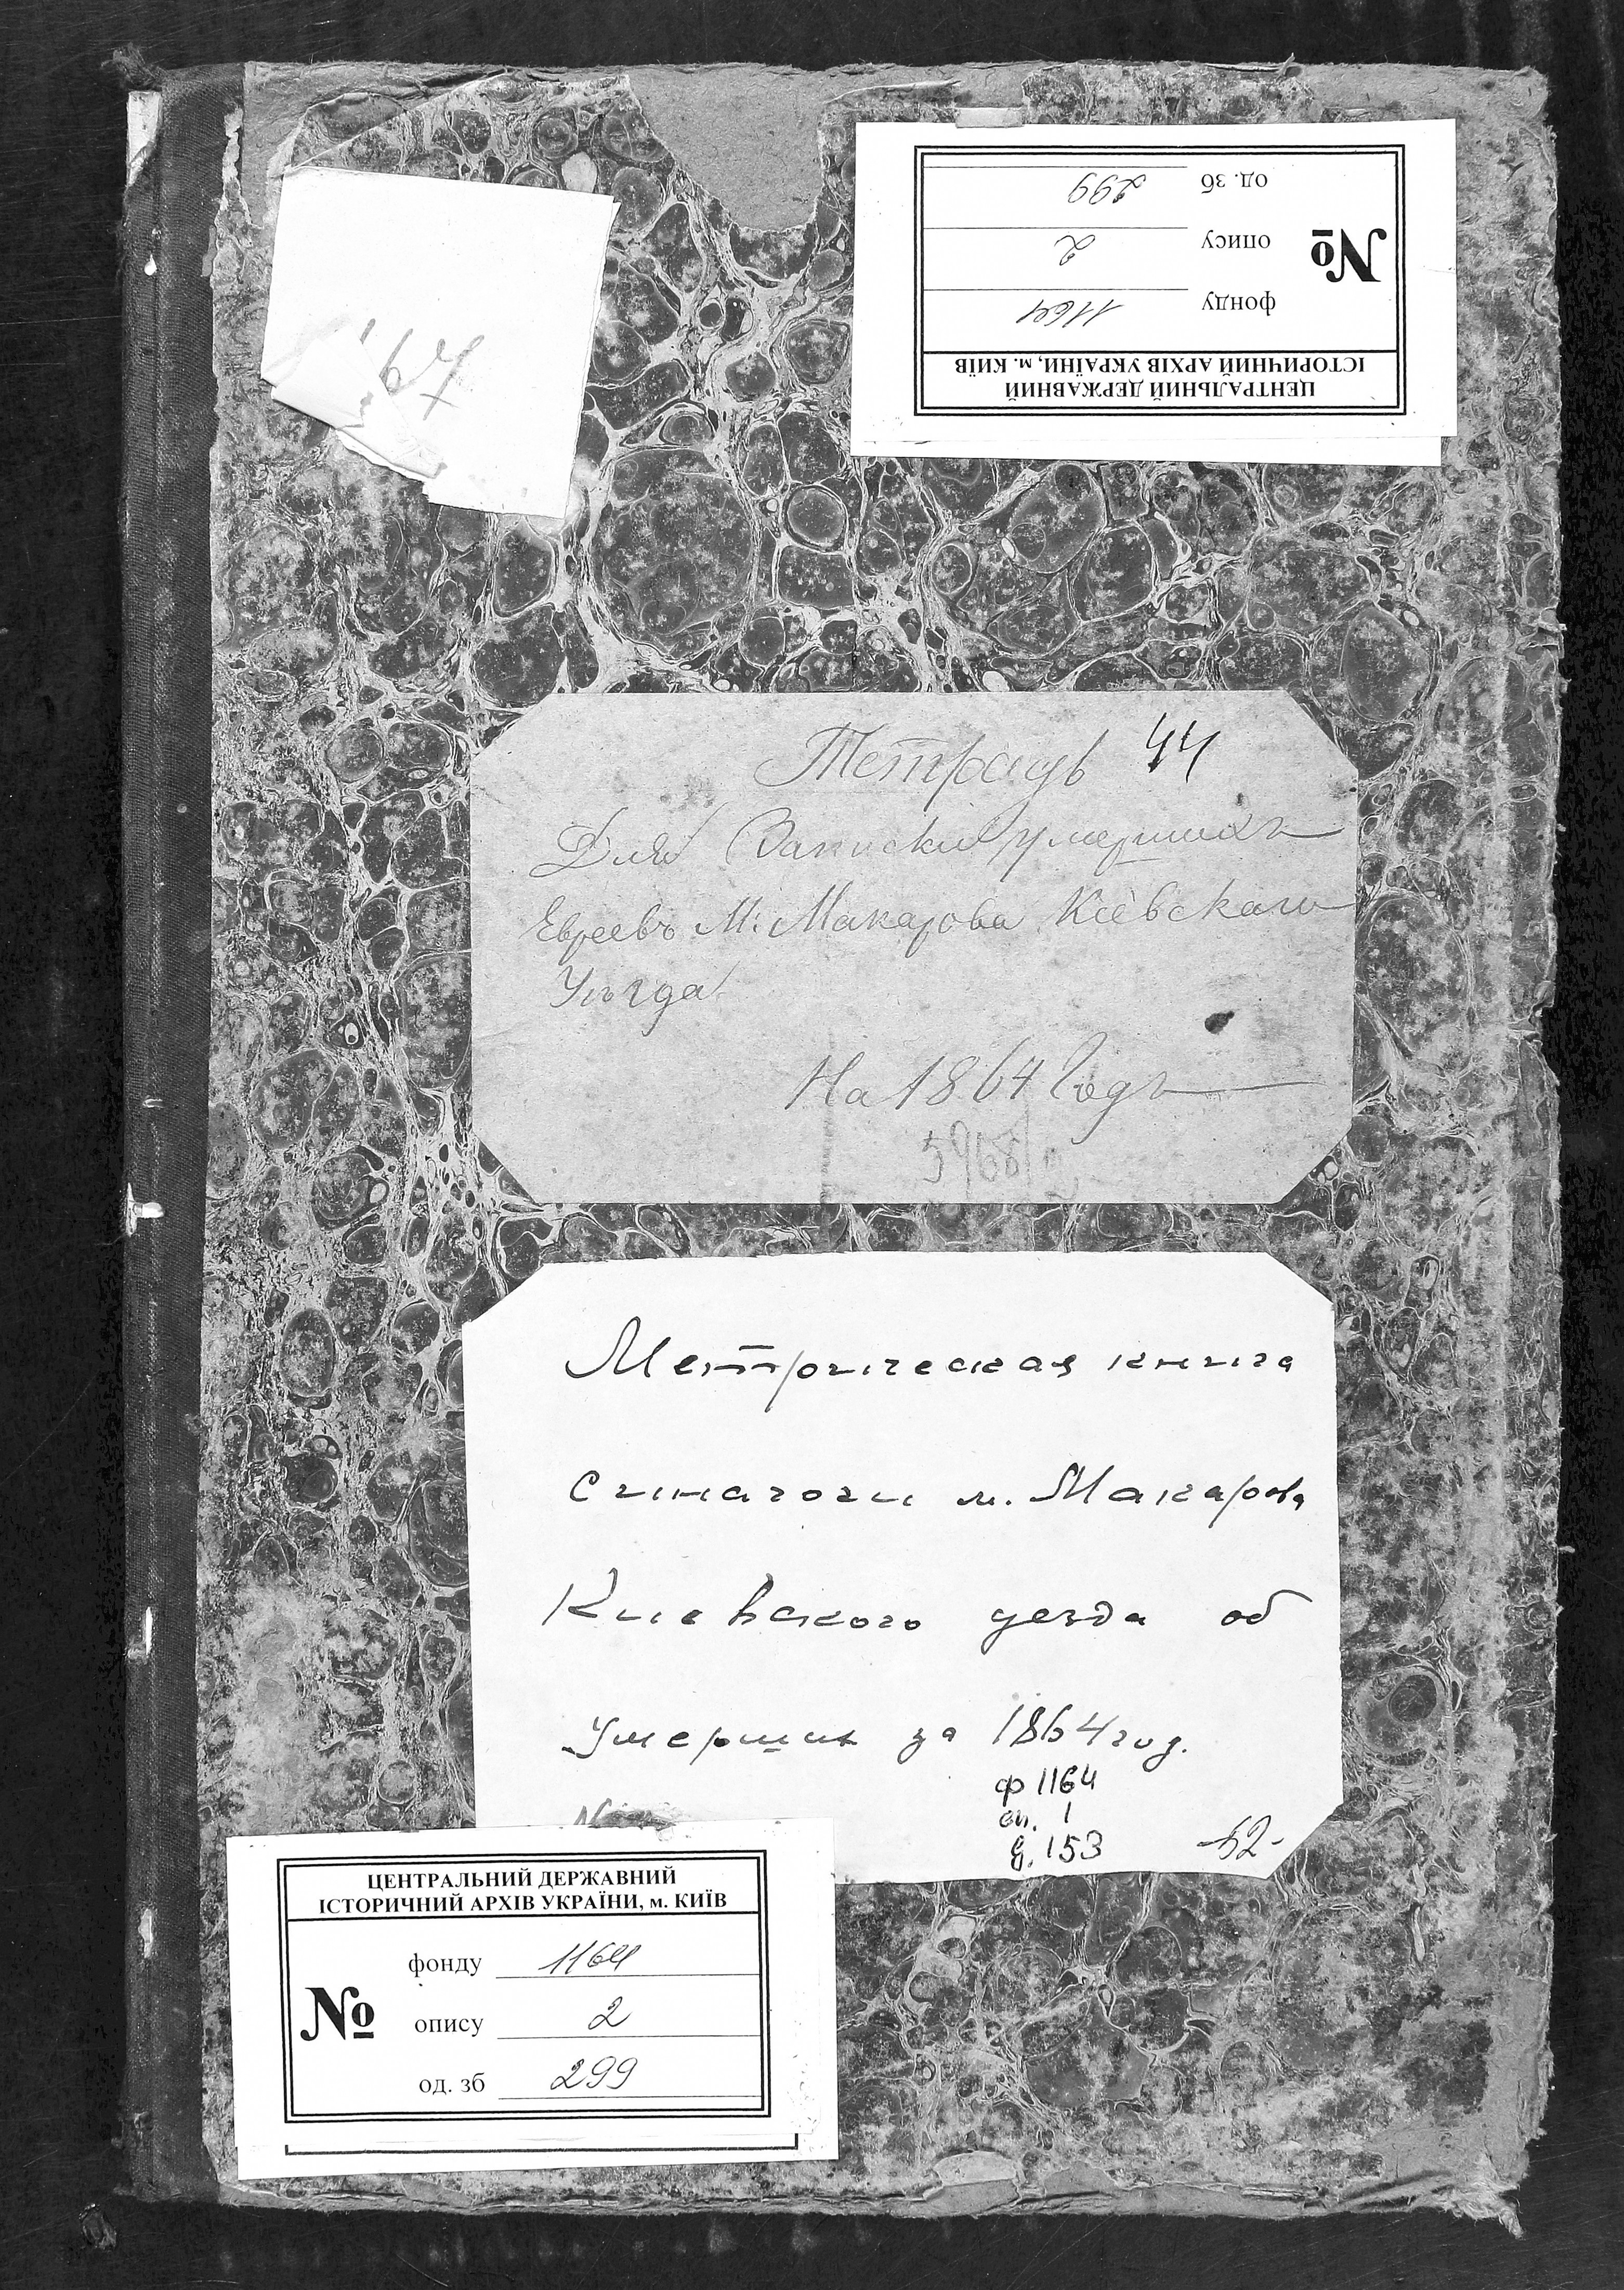 од. зб 299
опису 2
№
фонду 1164
ЦЕНТРАЛЬНИЙ ДЕРЖАВНИЙ
ІСТОРИЧНИЙ АРХІВ УКРАЇНИ, м. КИЇВ
Тетрадь 44
Для Записки умершихъ
Евреевъ М: Макарова Кіевскаго
Уѣзда
На 1864 Годъ
Метрическая книга
синагоги м. Макарова
Киевского уезда об
умерших за 1864 год.
ф 1164
оп. 1
д. 153
ЦЕНТРАЛЬНИЙ ДЕРЖАВНИЙ
ІСТОРИЧНИЙ АРХІВ УКРАЇНИ, м. КИЇВ
фонду 1164
№
опису 2
од. зб 299